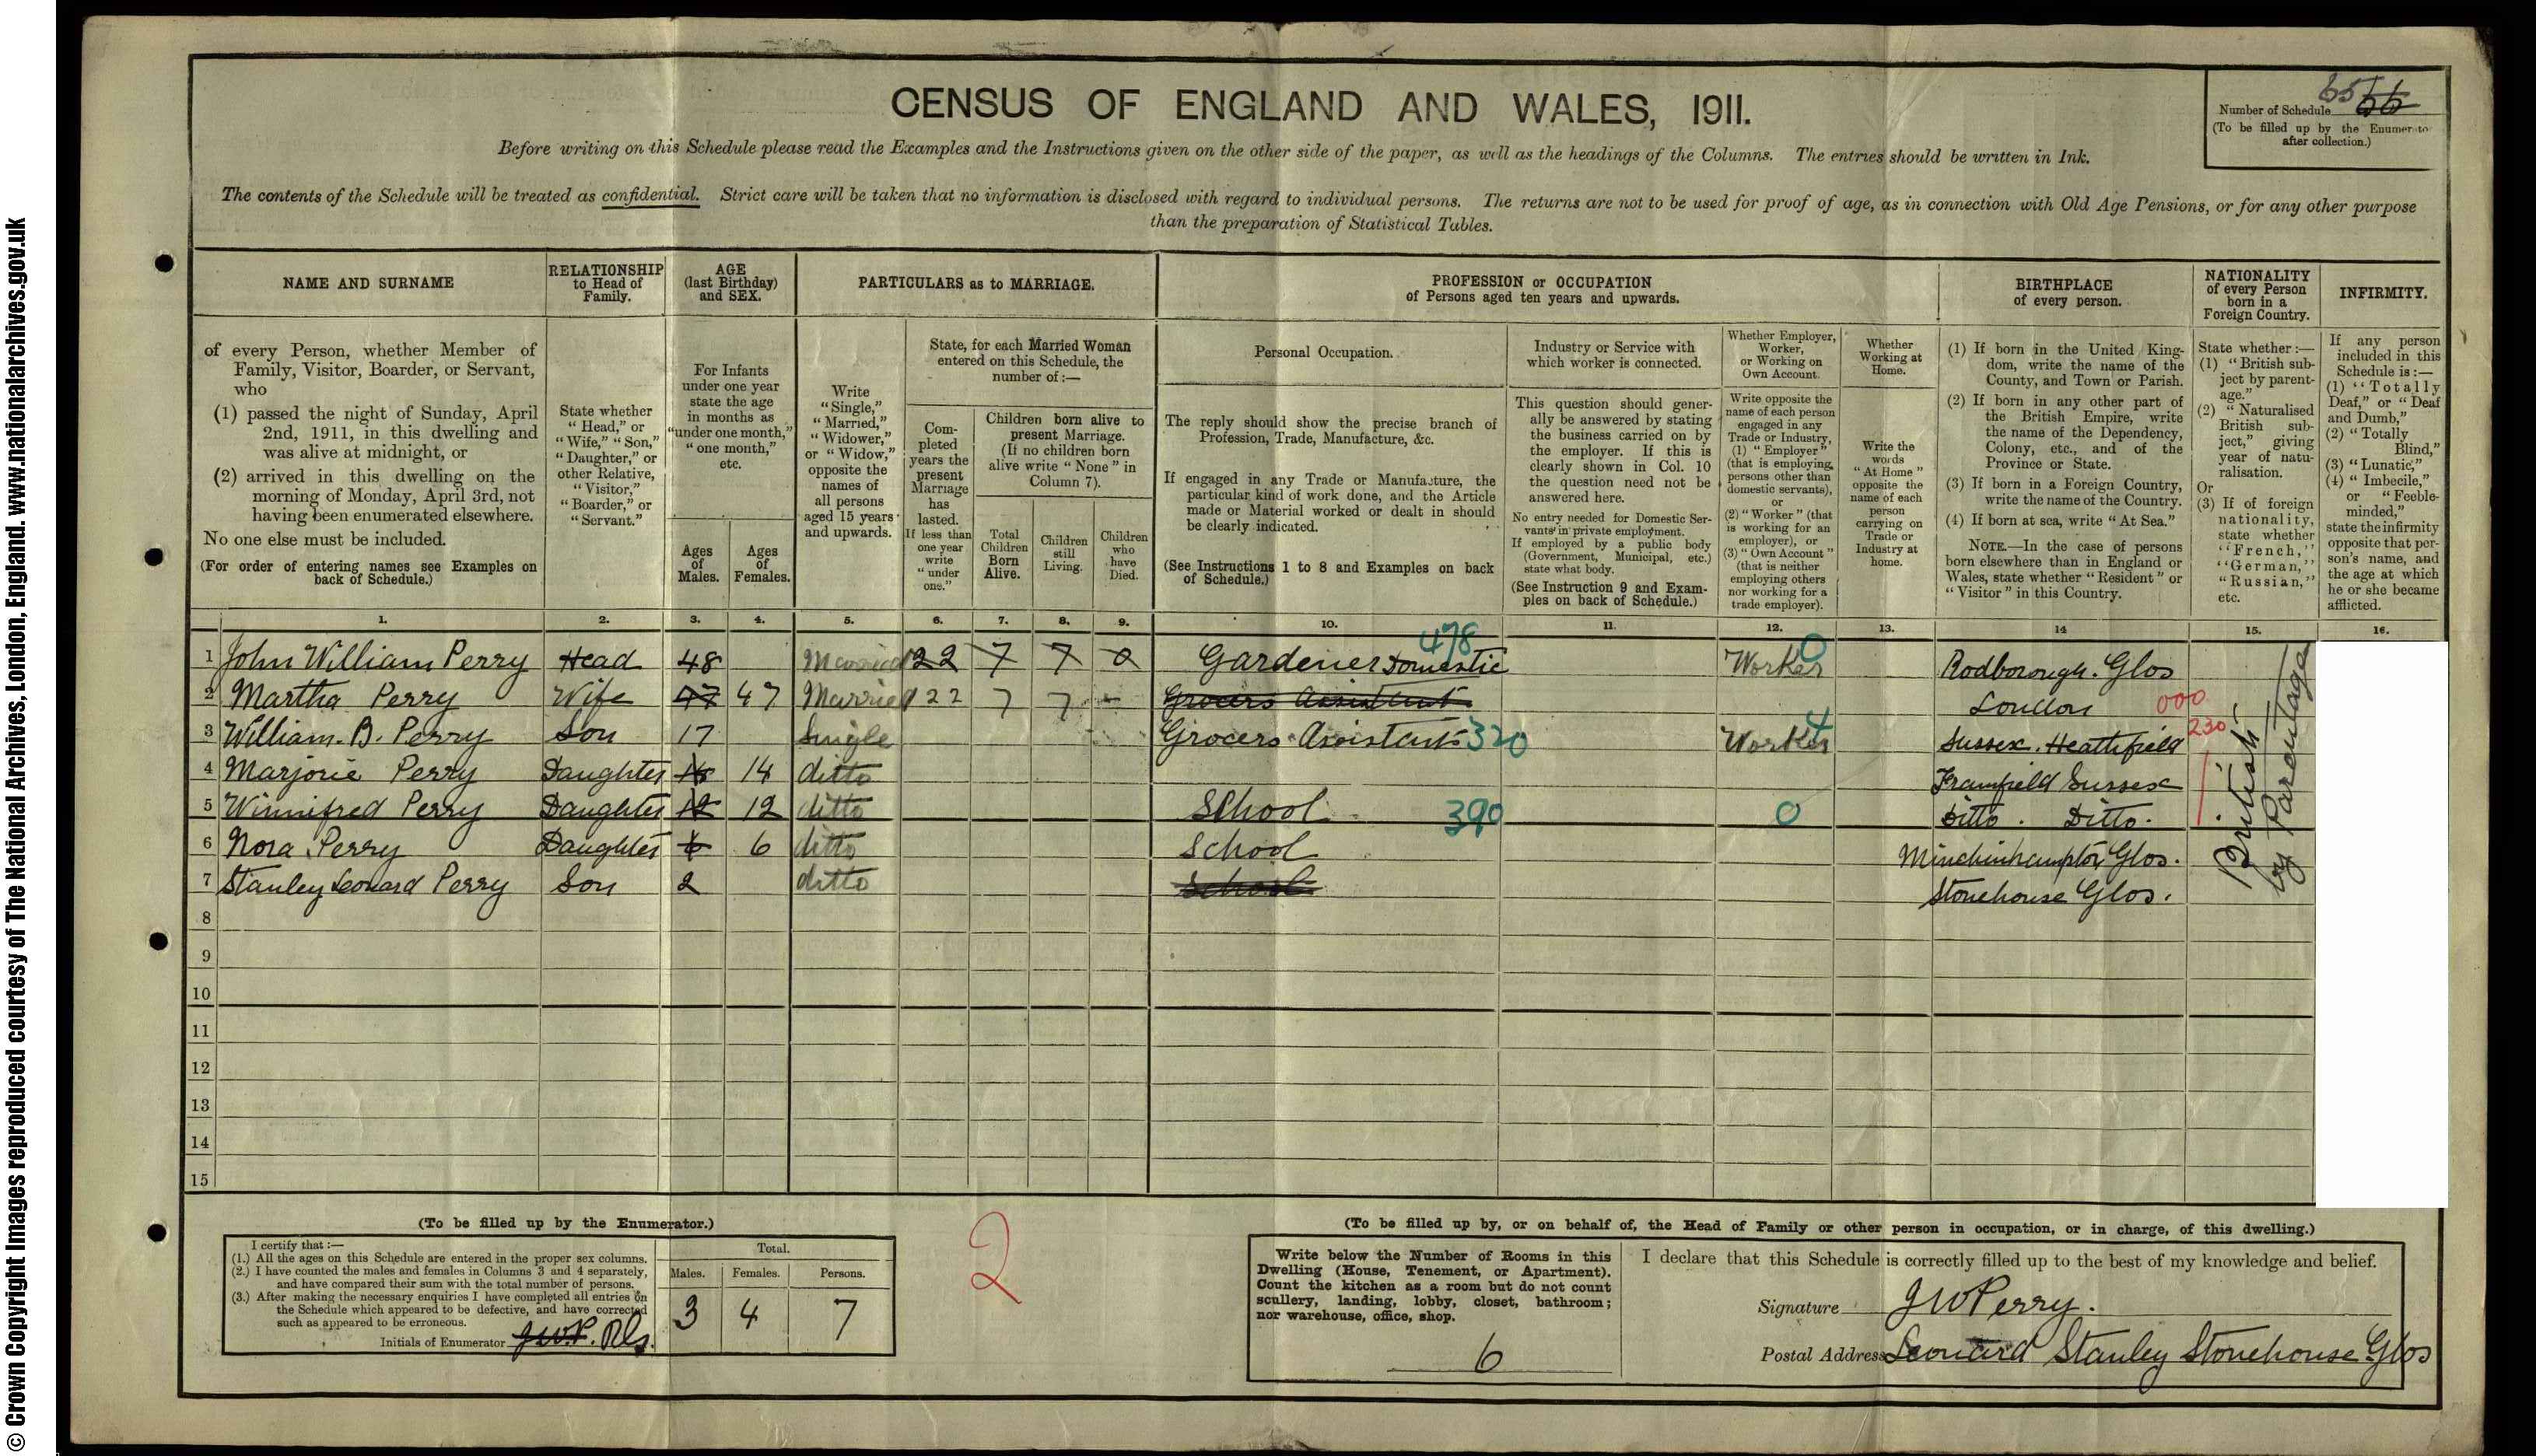 © Crown Copyright Images reproduced courtesy of The National Archives, London, England. www.nationalarchives.gov.uk
CENSUS OF ENGLAND AND WALES, 1911.
65 66
Number of Schedule
(To be filled up by the Enumerator
after collection.)
Before writing on this Schedule please read the Examples and the Instructions given on the other side of the paper, as well as the headings of the Columns. The entries should be written in Ink.
The contents of the Schedule will be treated as confidential. Strict care will be taken that no information is disclosed with regard to individual persons. The returns are not to be used for proof of age, as in connection with Old Age Pensions, or for any other purpose
than the preparation of Statistical Tables.
NAME AND SURNAME
of every Person, whether Member of
Family, Visitor, Boarder, or Servant,
who
(1) passed the night of Sunday, April
2nd, 1911, in this dwelling and
was alive at midnight, or
(2) arrived in this dwelling on the
morning of Monday, April 3rd, not
having been enumerated elsewhere.
No one else must be included.
(For order of entering names see Examples on
back of Schedule.)
RELATIONSHIP
to Head of
Family.
State whether
"Head," or
"Wife," "Son,"
"Daughter," or
other Relative,
"Visitor,"
"Boarder," or
"Servant."
AGE
(last Birthday)
and SEX.
For Infants
under one year
state the age
in months as
"under one month,"
"one month,"
etc.
Ages
of
Males.
Ages
of
Females.
PARTICULARS as to MARRIAGE.
Write
"Single,"
"Married,"
"Widower,"
or "Widow,"
opposite the
names of
all persons
aged 15 years
and upwards.
State, for each Married Woman
entered on this Schedule, the
number of :—
Com-
pleted
years the
present
Marriage
has
lasted.
If less than
one year
write
"under
one."
Children born alive to
present Marriage.
(If no children born
alive write "None" in
Column 7).
Total
Children
Born
Alive.
Children
still
Living.
Children
who
have
Died.
PROFESSION or OCCUPATION
of Persons aged ten years and upwards.
Personal Occupation.
The reply should show the precise branch of
Profession, Trade, Manufacture, &c.
If engaged in any Trade or Manufacture, the
particular kind of work done, and the Article
made or Material worked or dealt in should
be clearly indicated.
(See Instructions 1 to 8 and Examples on back
of Schedule.)
Industry or Service with
which worker is connected.
This question should gener-
ally be answered by stating
the business carried on by
the employer. If this is
clearly shown in Col. 10
the question need not be
answered here.
No entry needed for Domestic Ser-
vants in private employment.
If employed by a public body
(Government, Municipal, etc.)
state what body.
(See Instruction 9 and Exam-
ples on back of Schedule.)
Whether Employer,
Worker,
or Working on
Own Account.
Write opposite the
name of each person
engaged in any
Trade or Industry,
(1) "Employer"
(that is employing
persons other than
domestic servants),
or
(2) "Worker" (that
is working for an
employer), or
(3) "Own Account"
(that is neither
employing others
nor working for a
trade employer).
Whether
Working at
Home.
Write the
words
"At Home"
opposite the
name of each
person
carrying on
Trade or
Industry at
home.
BIRTHPLACE
of every person.
(1) If born in the United King-
dom, write the name of the
County, and Town or Parish.
(2) If born in any other part of
the British Empire, write
the name of the Dependency,
Colony, etc., and of the
Province or State.
(3) If born in a Foreign Country,
write the name of the Country.
(4) If born at sea, write "At Sea."
NOTE.—In the case of persons
born elsewhere than in England or
Wales, state whether "Resident" or
"Visitor" in this Country.
NATIONALITY
of every Person
born in a
Foreign Country.
State whether :—
(1) "British sub-
ject by parent-
age."
(2) "Naturalised
British sub-
ject," giving
year of natu-
ralisation.
Or
(3) If of foreign
nationality,
state whether
"French,"
"German,"
"Russian,"
etc.
INFIRMITY.
If any person
included in this
Schedule is :—
(1) "Totally
Deaf," or "Deaf
and Dumb,"
(2) "Totally
Blind,"
(3) "Lunatic,"
(4) "Imbecile,"
or "Feeble-
minded,"
state the infirmity
opposite that per-
son's name, and
the age at which
he or she became
afflicted.
1. 2. 3. 4. 5. 6. 7. 8. 9. 10. 11. 12. 13. 14 15. 16.
1 John William Perry Head 48 Married 22 7 7 0 Gardener Domestic 478 Worker 0 Rodborough. Glos
2 Martha Perry Wife 47 47 Married 22 7 7 - Grocers Assistant London 000
3 William. B. Perry Son 17 Single Grocers Assistant 320 Worker 4 Sussex. Heathfield 230
4 Marjorie Perry Daughter 14 14 ditto Framfield Sussex
5 Winnifred Perry Daughter 12 12 ditto School 390 0 Ditto. Ditto.
6 Nora Perry Daughter 6 6 ditto School Minchinhampton Glos.
7 Stanley Leonard Perry Son 2 ditto School Stonehouse Glos.
British
by Parentage
8
9
10
11
12
13
14
15
(To be filled up by the Enumerator.)
I certify that :—
(1.) All the ages on this Schedule are entered in the proper sex columns.
(2.) I have counted the males and females in Columns 3 and 4 separately,
and have compared their sum with the total number of persons.
(3.) After making the necessary enquiries I have completed all entries on
the Schedule which appeared to be defective, and have corrected
such as appeared to be erroneous.
Initials of Enumerator JWP.
Total.
Males. Females. Persons.
3 4 7
2
(To be filled up by, or on behalf of, the Head of Family or other person in occupation, or in charge, of this dwelling.)
Write below the Number of Rooms in this
Dwelling (House, Tenement, or Apartment).
Count the kitchen as a room but do not count
scullery, landing, lobby, closet, bathroom;
nor warehouse, office, shop.
6
I declare that this Schedule is correctly filled up to the best of my knowledge and belief.
Signature JWPerry.
Postal Address Leonard Stanley Stonehouse Glos